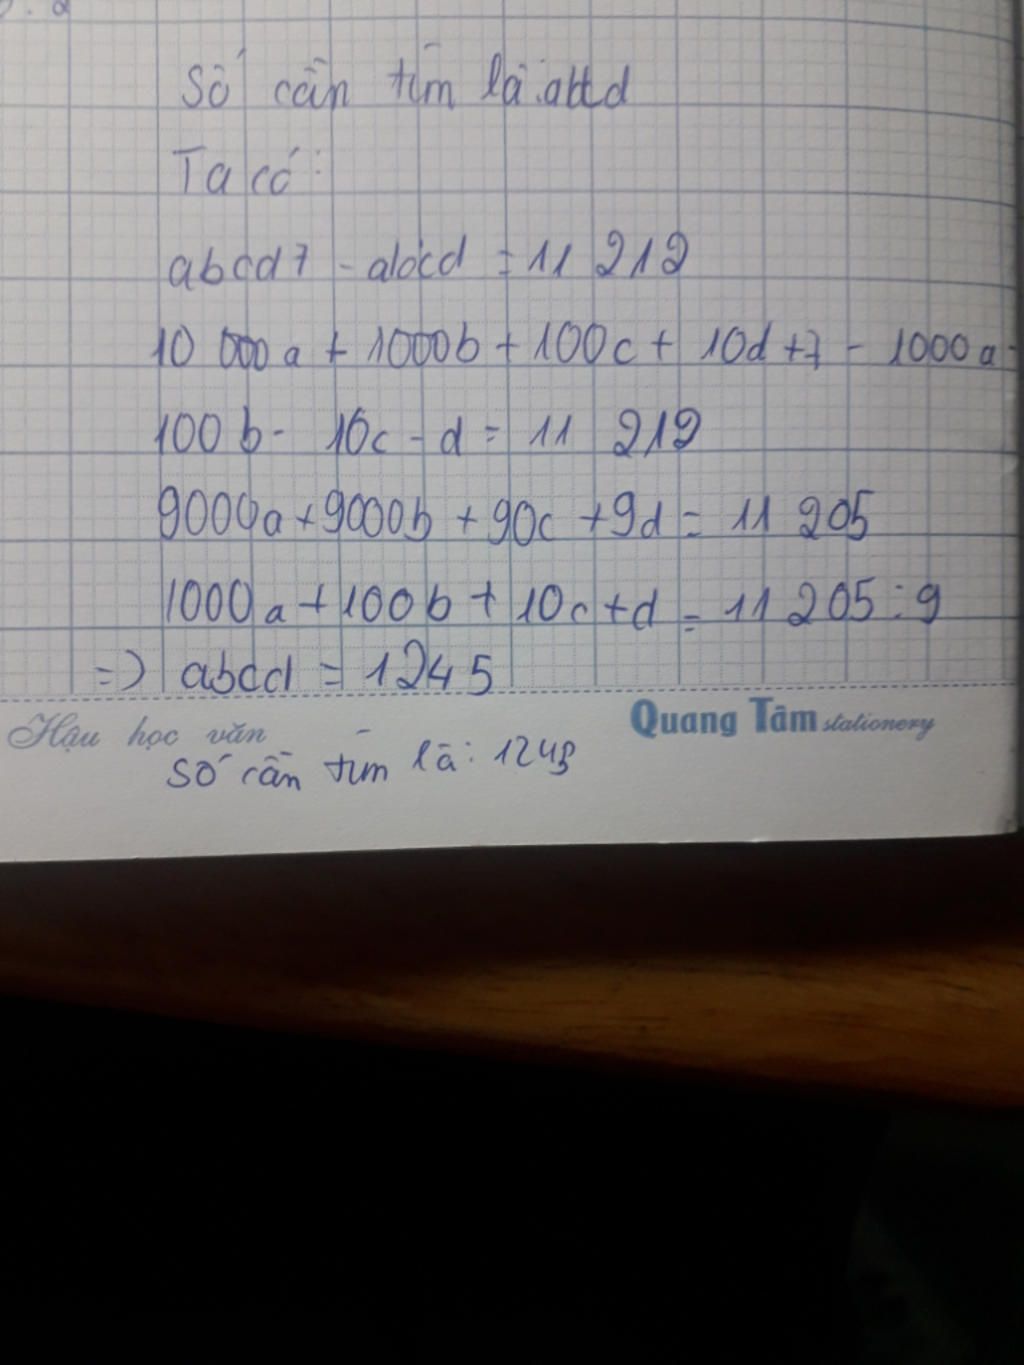 Số cần tìm là: abcd
Ta có:
abcd7 - abcd = 11 212
10 000a + 1000b + 100c + 10d +7 - 1000a -
100b - 10c - d = 11 212
9000a + 9000b + 90c + 9d = 11 205
1000a + 100b + 10c + d = 11 205 : 9
=> abcd = 1245
Quang Tâm stationery
Hậu học văn
Số cần tìm là: 1245